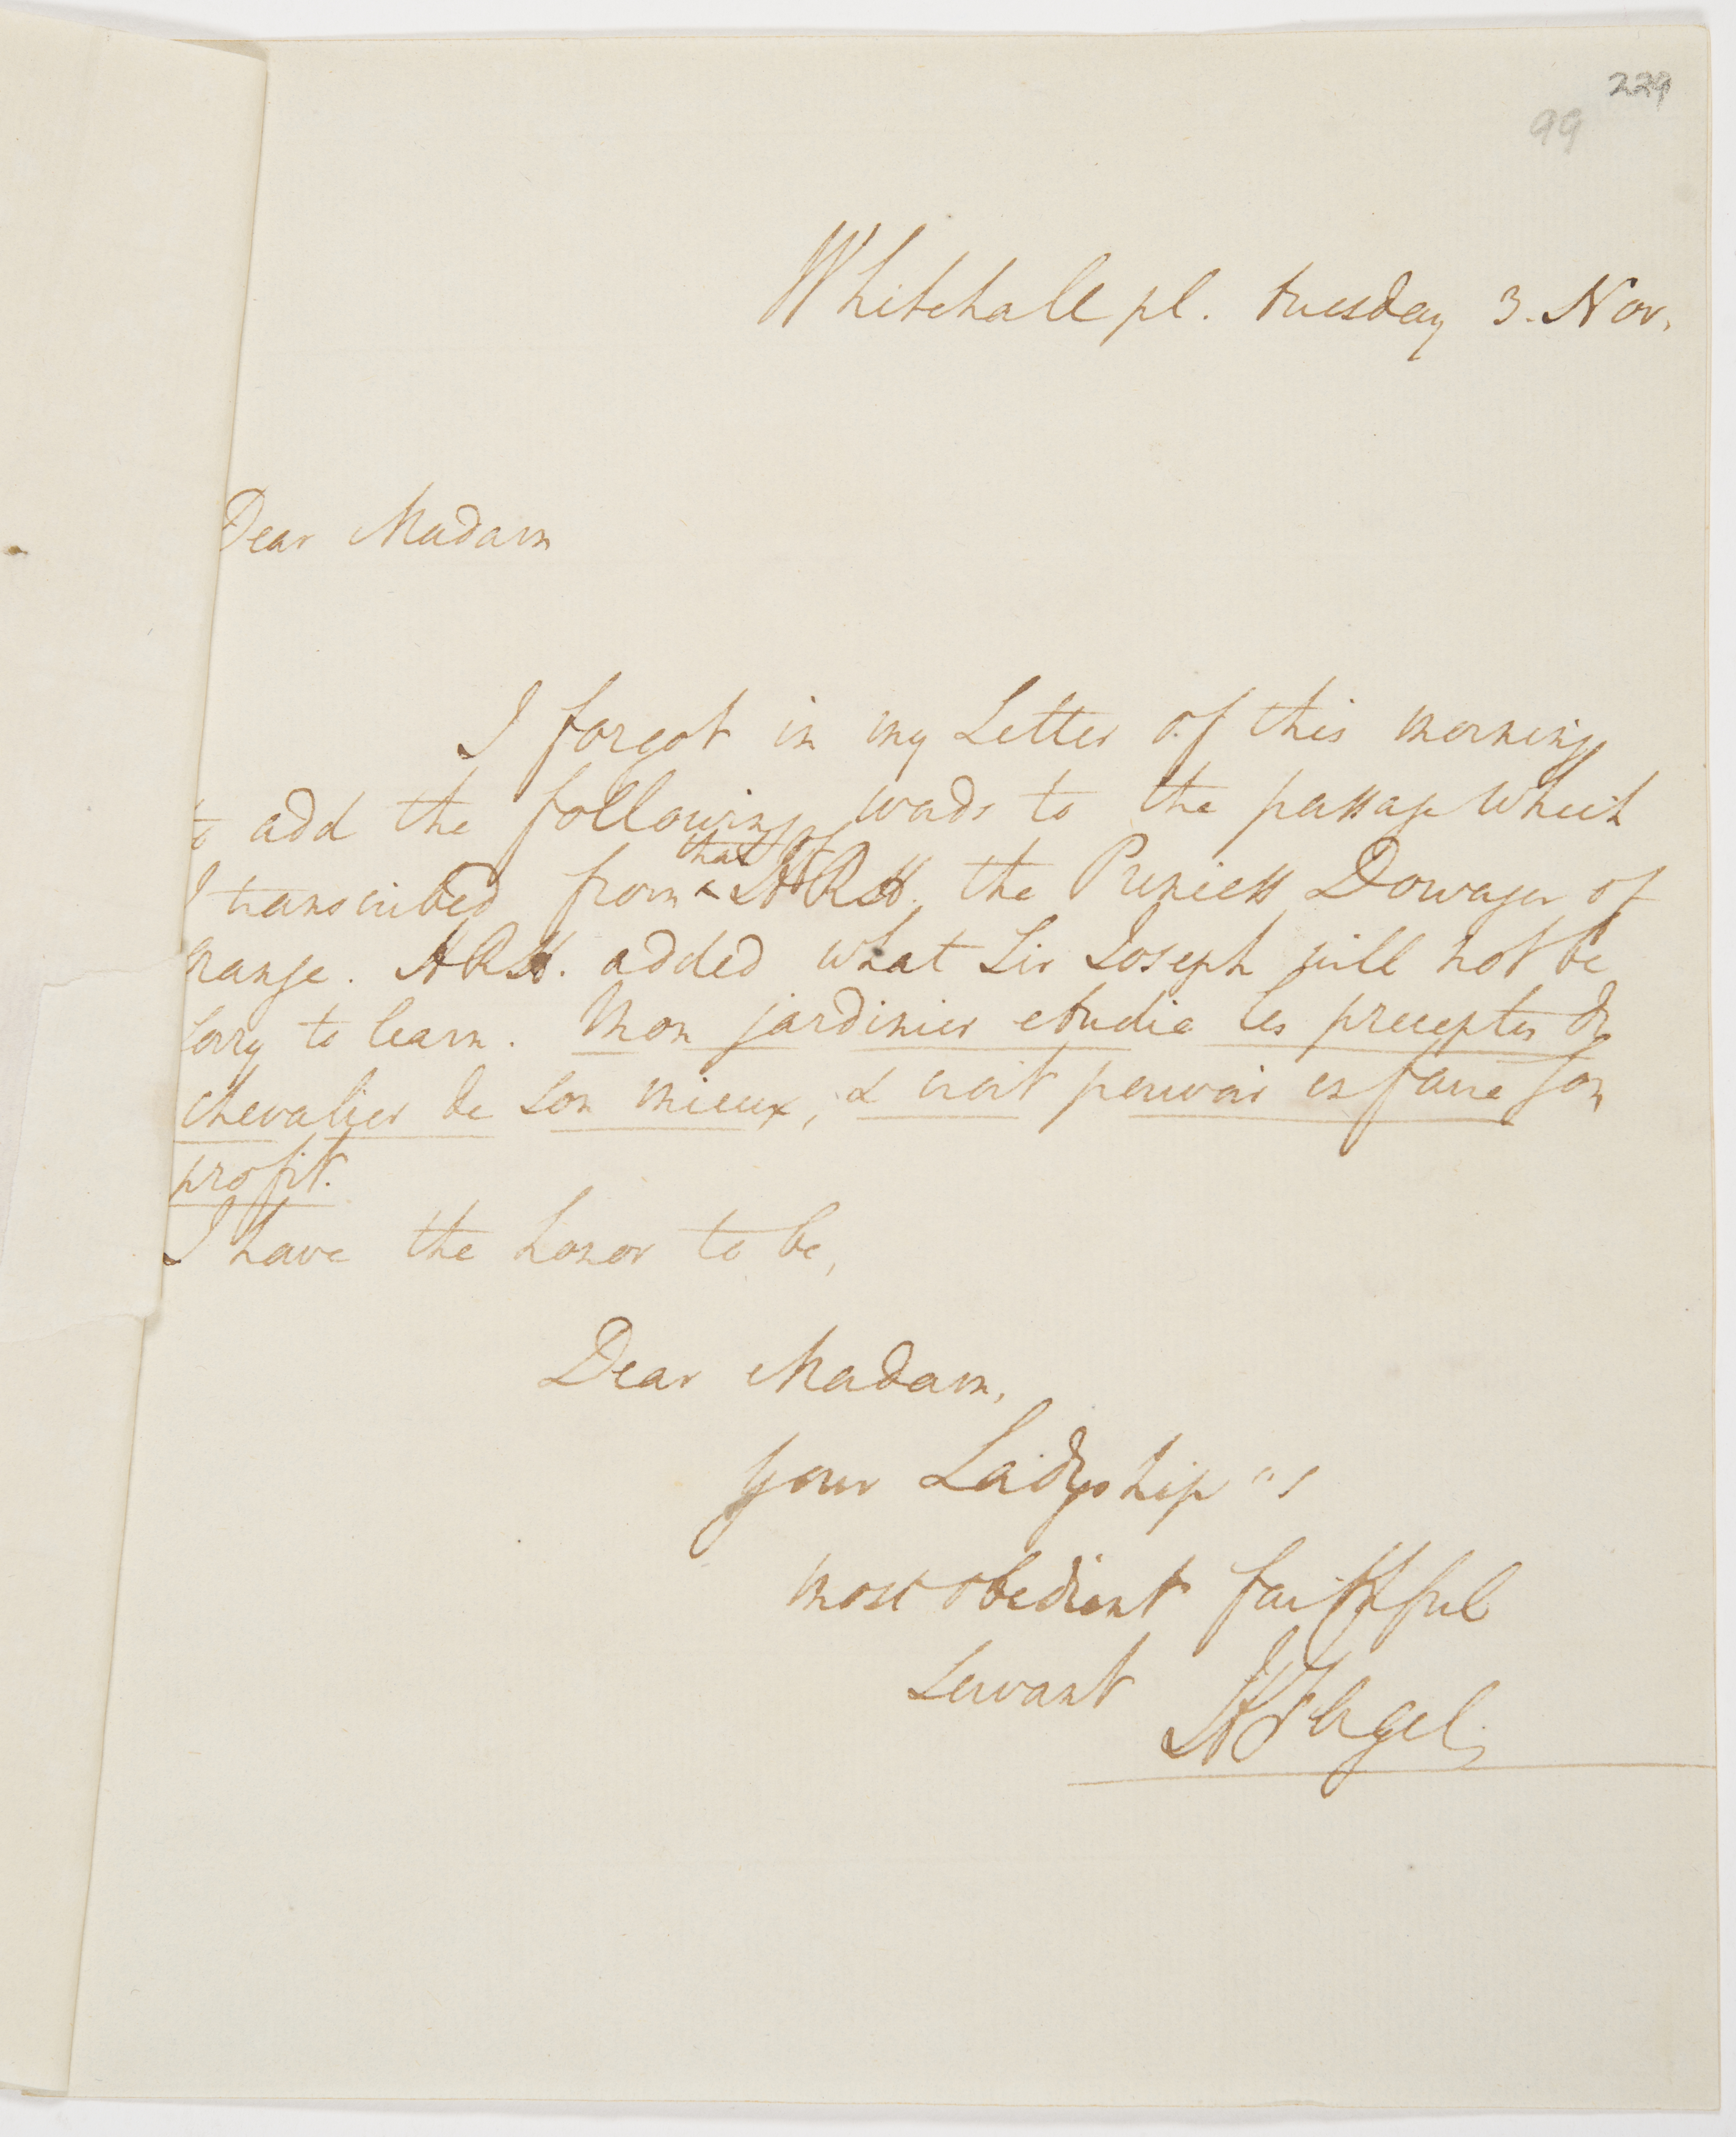 229
99
Whitehall pl. tuesday 3. Nov.
Dear Madam
I forgot in my Letter of this morning
to add the following words to the passage which
that of
I transcribed from ^ H.R.H. the Princess Dowager of
Orange. H.R.H. added what Sir Joseph will not be
sorry to learn. Mon jardinier etudie les preceptes du
chevalier de son mieux, & croit pouvoir en faire son
profit.
I have the honor to be,
Dear Madam,
your Ladyship's
most obedient faithful
servant H Fagel